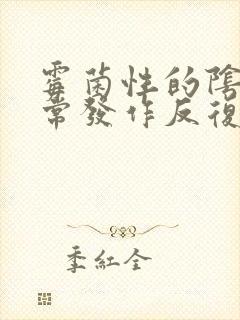 霉菌性的陰
常發作反復
季紅全